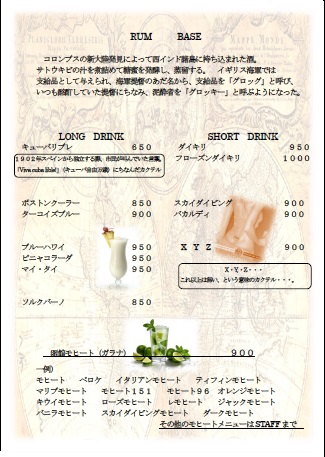 RUM BASE
コロンブスの新大陸発見によって西インド諸島に持ち込まれた酒。
サトウキビの汁を煮詰めて糖蜜を発酵し、蒸留する。 イギリス海軍では
支給品として与えられ、海軍提督のあだ名から、支給品を「グロッグ」と呼び、
いつも酩酊していた提督にちなみ、泥酔者を「グロッキー」と呼ぶようになった。
LONG DRINK
キューバリブレ ６５０
１９０２年スペインから独立する際、市民が叫んでいた言葉。
『Viva cuba libre!』（キューバ自由万歳）にちなんだカクテル
ボストンクーラー ８５０
ターコイズブルー ９００
ブルーハワイ ９５０
ピニャコラーダ ９５０
マイ・タイ ９５０
ソルクバーノ ８５０
SHORT DRINK
ダイキリ ９５０
フローズンダイキリ １０００
スカイダイビング ９００
バカルディ ９００
Ｘ Ｙ Ｚ ９００
Ｘ・Ｙ・Ｚ・・・
これ以上は無い、という意味のカクテル・・・。
函館モヒート（ガラナ） ９００
一例）
モヒート ベロケ イタリアンモヒート ティフィンモヒート
マリブモヒート モヒート１５１ モヒート９６ オレンジモヒート
キウイモヒート ローズモヒート レモヒート ジャックモヒート
バニラモヒート スカイダイビングモヒート ダークモヒート
その他のモヒートメニューは STAFF まで